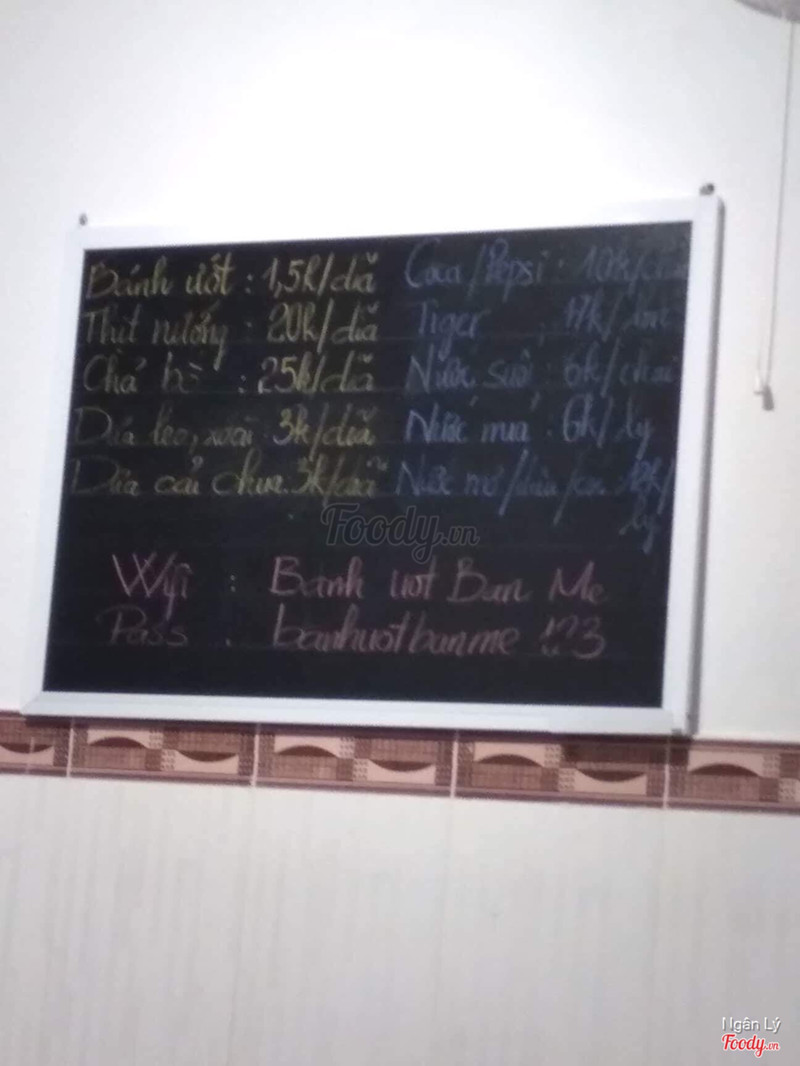 Bánh ướt : 1,5k/dĩa
Thịt nướng : 20k/dĩa
Chả bò : 25k/dĩa
Dưa leo, xoài 3k/dĩa
Dưa cải chua. 3k/dĩa
Coca/Pepsi : 10k/
Tiger : 17k/
Nước suối : 6k/chai
Nước mía : 6k/ly
Nước mơ/dừa/ 12k/
ly
Foody.vn
Wifi : Banh uot Ban Me
Pass : banhuotbanme 123
Ngân Lý
Foody.vn